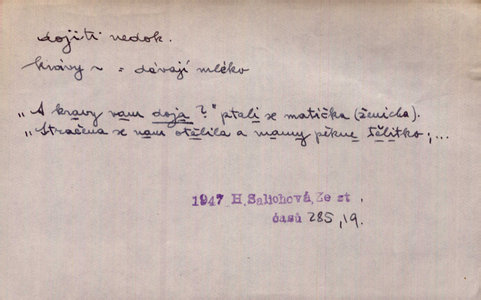 dojiti nedok.
krávy ~ = dávají mléko
„A kravy vam doja?" ptali se matička (ženicha).
„Stračena se nam otělila a mamy pěkne tělitko;...
1947 H.Salichová,Ze st.
časů 285,19.